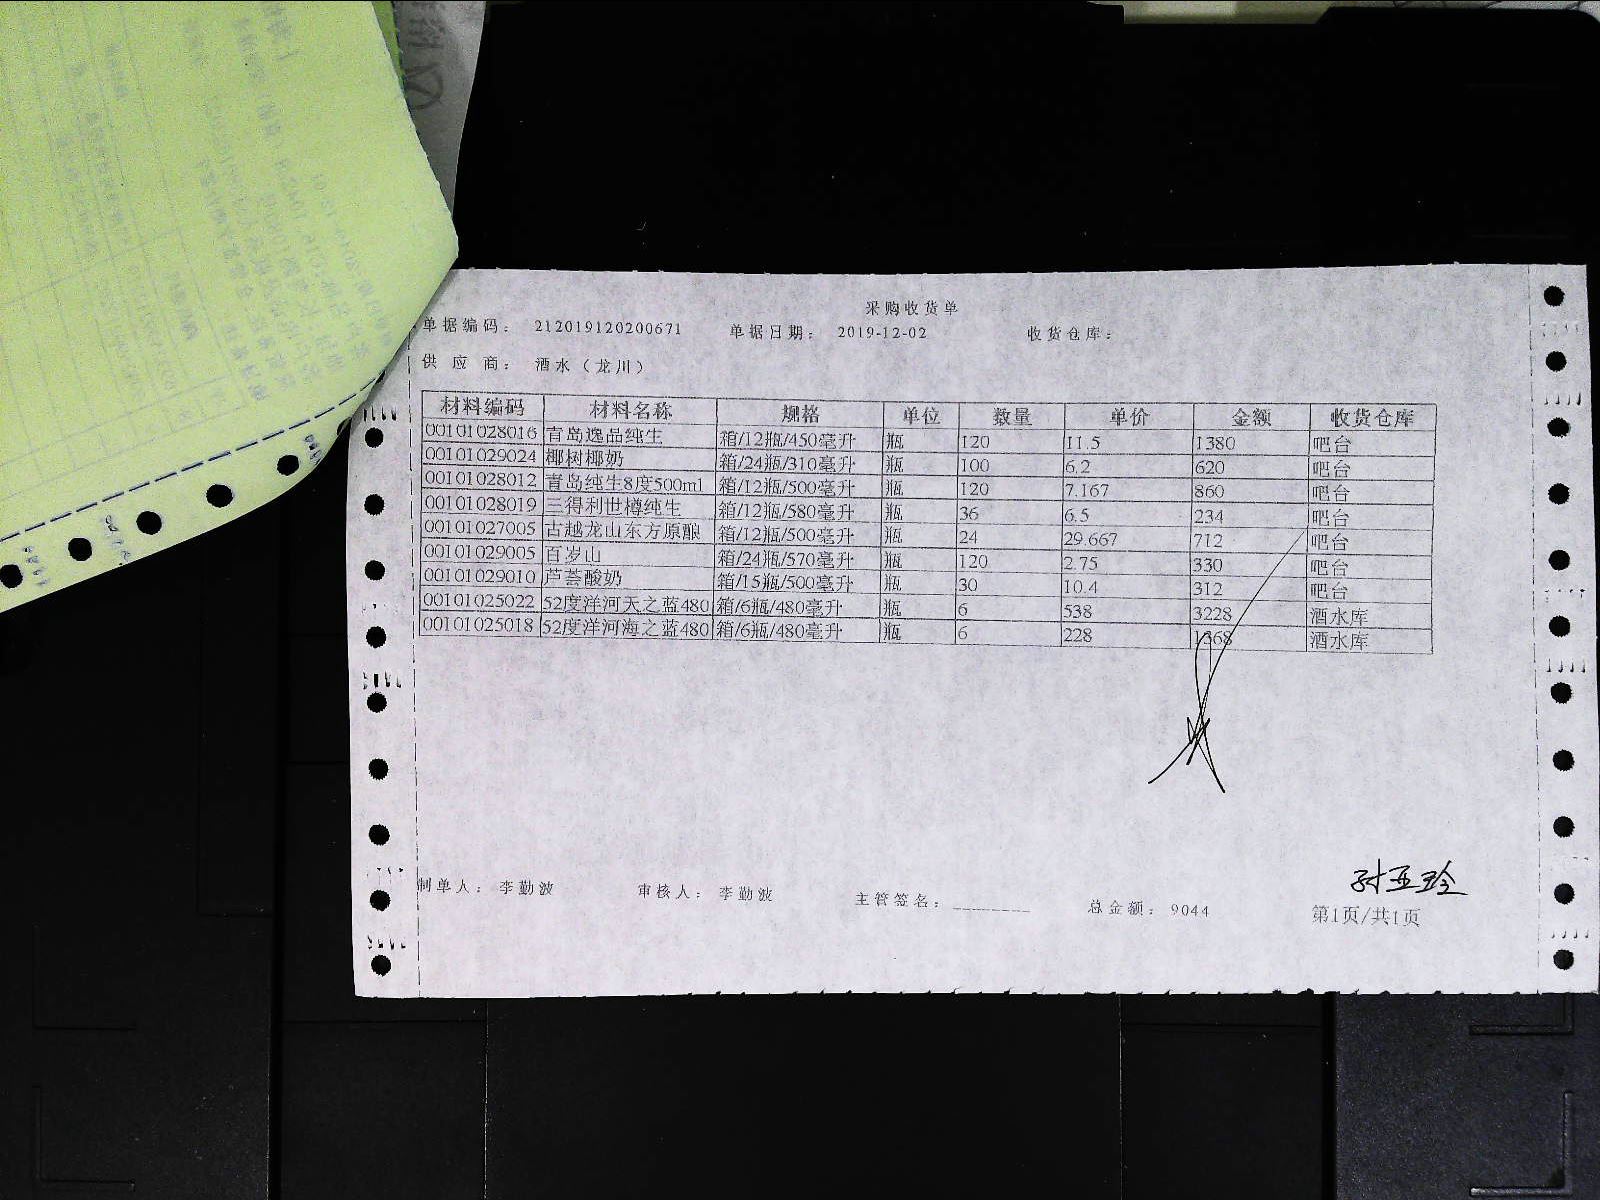 采购收货单
单据编码： 212019120200671 单据日期： 2019-12-02 收货仓库：
供 应 商： 酒水（龙川）
材料编码 材料名称 规格 单位 数量 单价 金额 收货仓库
00101028016 青岛逸品纯生 箱/12瓶/450毫升 瓶 120 11.5 1380 吧台
00101029024 椰树椰奶 箱/24瓶/310毫升 瓶 100 6.2 620 吧台
00101028012 青岛纯生8度500ml 箱/12瓶/500毫升 瓶 120 7.167 860 吧台
00101028019 三得利世樽纯生 箱/12瓶/580毫升 瓶 36 6.5 234 吧台
00101027005 古越龙山东方原酿 箱/12瓶/500毫升 瓶 24 29.667 712 吧台
00101029005 百岁山 箱/24瓶/570毫升 瓶 120 2.75 330 吧台
00101029010 芦荟酸奶 箱/15瓶/500毫升 瓶 30 10.4 312 吧台
00101025022 52度洋河天之蓝480 箱/6瓶/480毫升 瓶 6 538 3228 酒水库
00101025018 52度洋河海之蓝480 箱/6瓶/480毫升 瓶 6 228 1368 酒水库
制单人： 李勤波 审核人： 李勤波 主管签名：________ 总金额： 9044
第1页/共1页